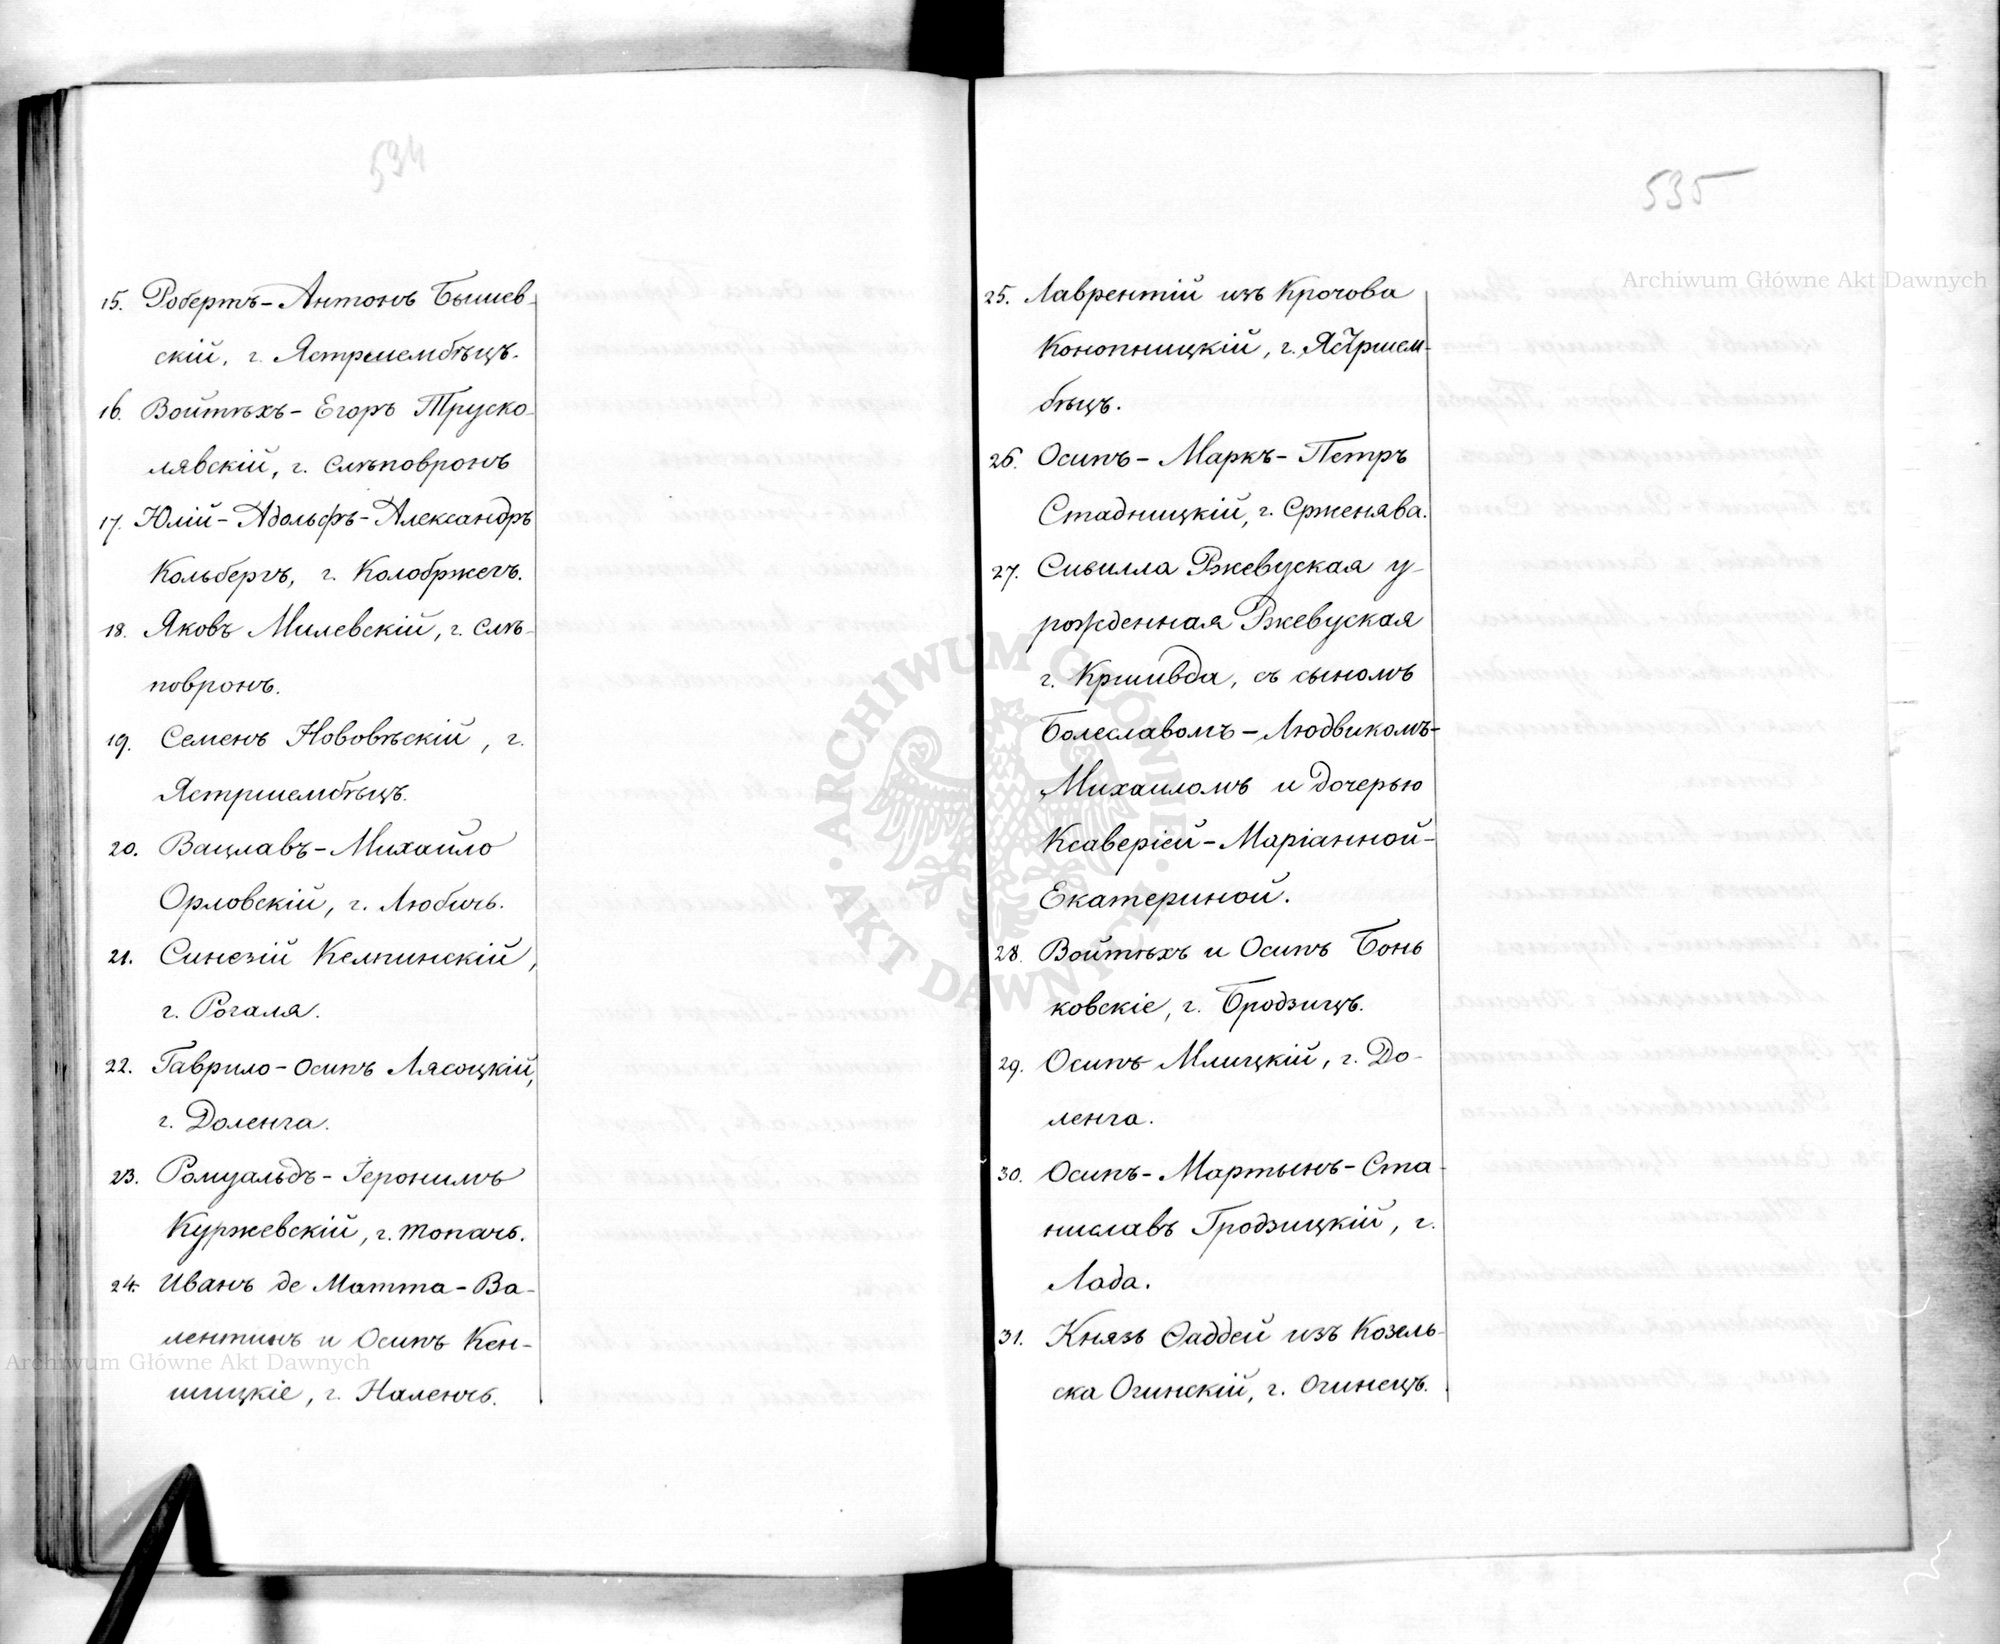 534
15. Робертъ-Антонъ Бышев-
скій, г. Ястршембѣцъ.
16. Войтѣхъ-Егоръ Труско-
лявскій, г. Слѣповронъ
17. Юлій-Адольфъ-Александръ
Кольбергъ, г. Колобржегъ.
18. Яковъ Милевскій, г. Слѣ-
повронъ.
19. Семенъ Нововѣскій, г.
Ястршембѣцъ.
20. Вацлавъ-Михайло
Орловскій, г. Любичъ.
21. Синезій Кемпинскій,
г. Рогаля.
22. Гаврило-Осипъ Лясоцкій,
г. Доленга.
23. Ромуальдъ-Іеронимъ
Куржевскій, г. Топачъ.
24. Иванъ де Матта-Ва-
лентинъ и Осипъ Кен-
шицкіе, г. Наленчъ.
535
25. Лаврентій изъ Крочова
Конопницкій, г. Ястршем-
бѣцъ.
26. Осипъ-Маркъ-Петръ
Стадницкій, г. Срженява.
27. Сивилла Ржевуская у-
рожденная Ржевуская
г. Кршивда, съ сыномъ
Болеславомъ-Людвикомъ-
Михаиломъ и дочерью
Ксаверіей-Маріанной-
Екатериной.
28. Войтѣхъ и Осипъ Бонь
ковскіе, г. Бродзицъ.
29. Осипъ Млицкій, г. До-
ленга.
30. Осипъ-Мартынъ-Ста-
ниславъ Гродзицкій, г.
Лада.
31. Князь Ѳаддей изъ Козель-
ска Огинскій, г. Огинецъ.
Archiwum Główne Akt Dawnych
Archiwum Główne Akt Dawnych
ARCHIWUM GŁÓWNE AKT DAWNYCH